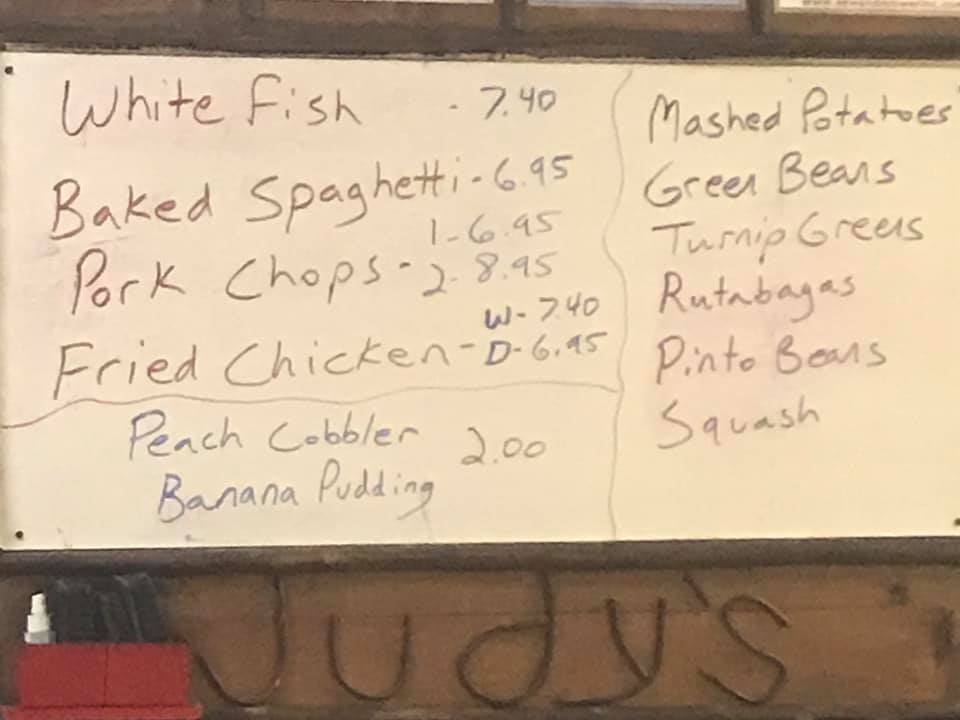 White Fish - 7.40
Baked Spaghetti - 6.95
1 - 6.95
Pork Chops - 2 - 8.95
W - 7.40
Fried Chicken - D - 6.95
Peach Cobbler 2.00
Banana Pudding
Mashed Potatoes
Green Beans
Turnip Greens
Rutabagas
Pinto Beans
Squash
Judy's